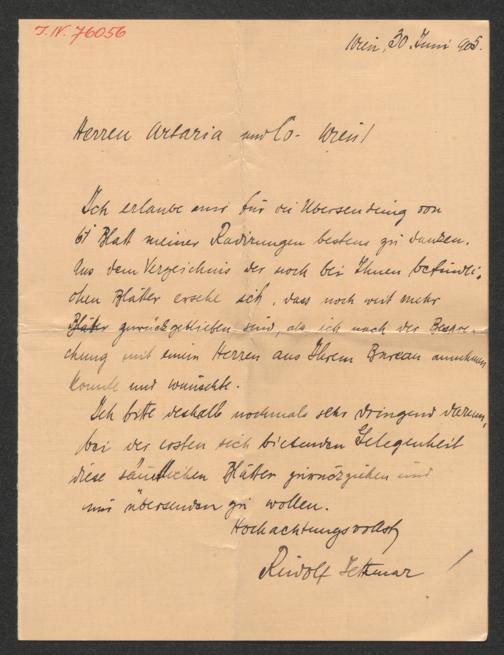 J.N. 76056
Wien, 30. Juni 905.
Herren Artaria und Co. Wien!
Ich erlaube mir für die Übersendung von
61 Blatt meiner Radirungen bestens zu danken.
Aus dem Verzeichnis der noch bei Ihnen befindli-
chen Blätter ersehe ich, dass noch weit mehr
Blätter zurückgeblieben sind, als ich nach der Bespre-
chung mit einem Herren aus Ihrem Bureau annehmen
konnte und wünschte.
Ich bitte deshalb nochmals sehr dringend darum,
bei der ersten sich bietenden Gelegenheit
diese sämtlichen Blätter zurückziehen und
mir übersenden zu wollen.
Hochachtungsvollst
Rudolf Jettmar